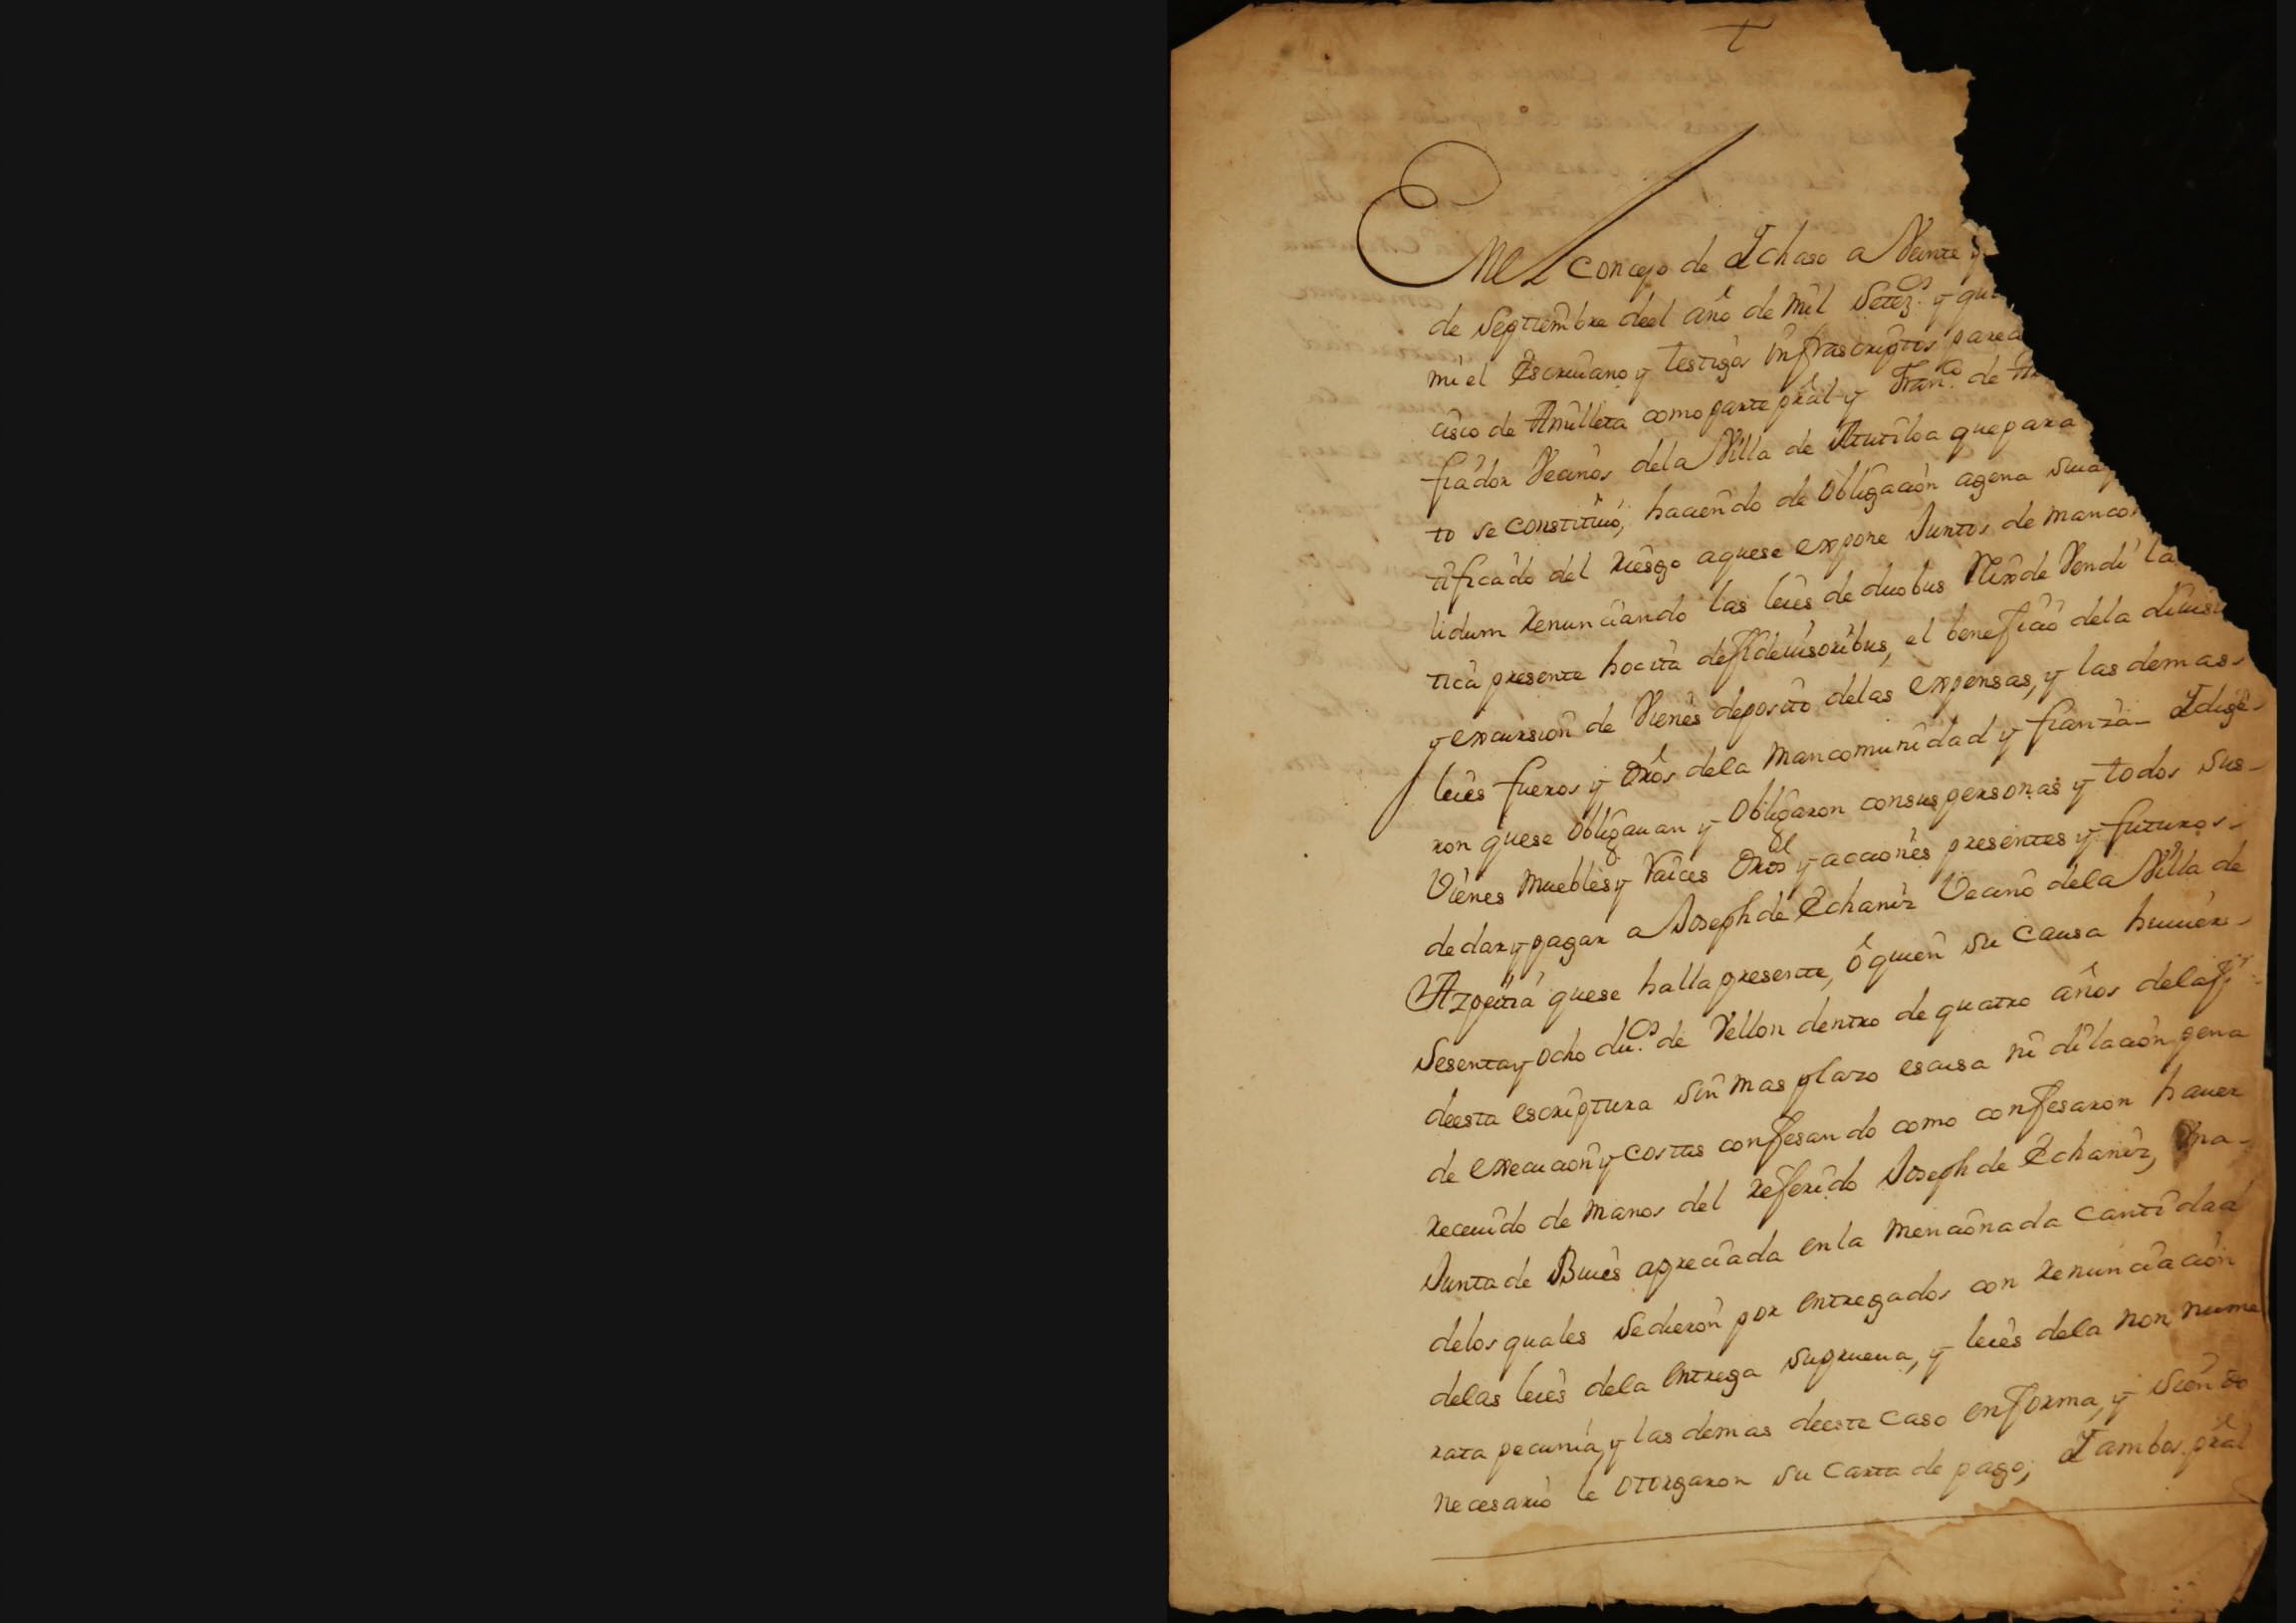 En el Concejo de Ichaso a Veinte y
de Septiembre deel año de mil Setez.os y qu
mi el Escriuano y testigos infrascriptos parec
cisco de Amilleta como parte pral y Fran.co de
fiador Vecinos dela Villa de Atatiloa que para
to se constituió, haciendo de obligacion agena sua
tificado del riesgo aquese expone Juntos de manco
lidum renunciando las leies de duobus Rexde Vendi la
tica presente hocita defideiusoribus, el beneficio dela diuisi
y excursion de Vienes deposito delas expensas, y las demas
leies fueros y dros dela mancomunidad y fianza Idige
ron quese obligauan y obligaron consus personas y todos sus
Vienes muebles y raices dros y acciones presentes y futuros
de dar y pagar a Joseph de Echaniz Vecino dela Villa de
Azpeitia quese halla presente, ô quien su causa huuiere
Sesenta y ocho du.os de Vellon dentro de quatro años dela
deesta escriptura sin mas plazo escusa ni dilacion pena
de execucion y costas confesando como confesaron hauer
receuido de manos del referido Joseph de Echaniz, Vna
Junta de Bueis apreciada en la mencionada cantidad
delos quales sedieron por entregados con renunciacion
delas leies dela entrega suprueua, y leies dela non nume
rata pecunia, y las demas deeste caso en forma, y siendo
necesario le otorgaron su carta de pago; I ambos pral